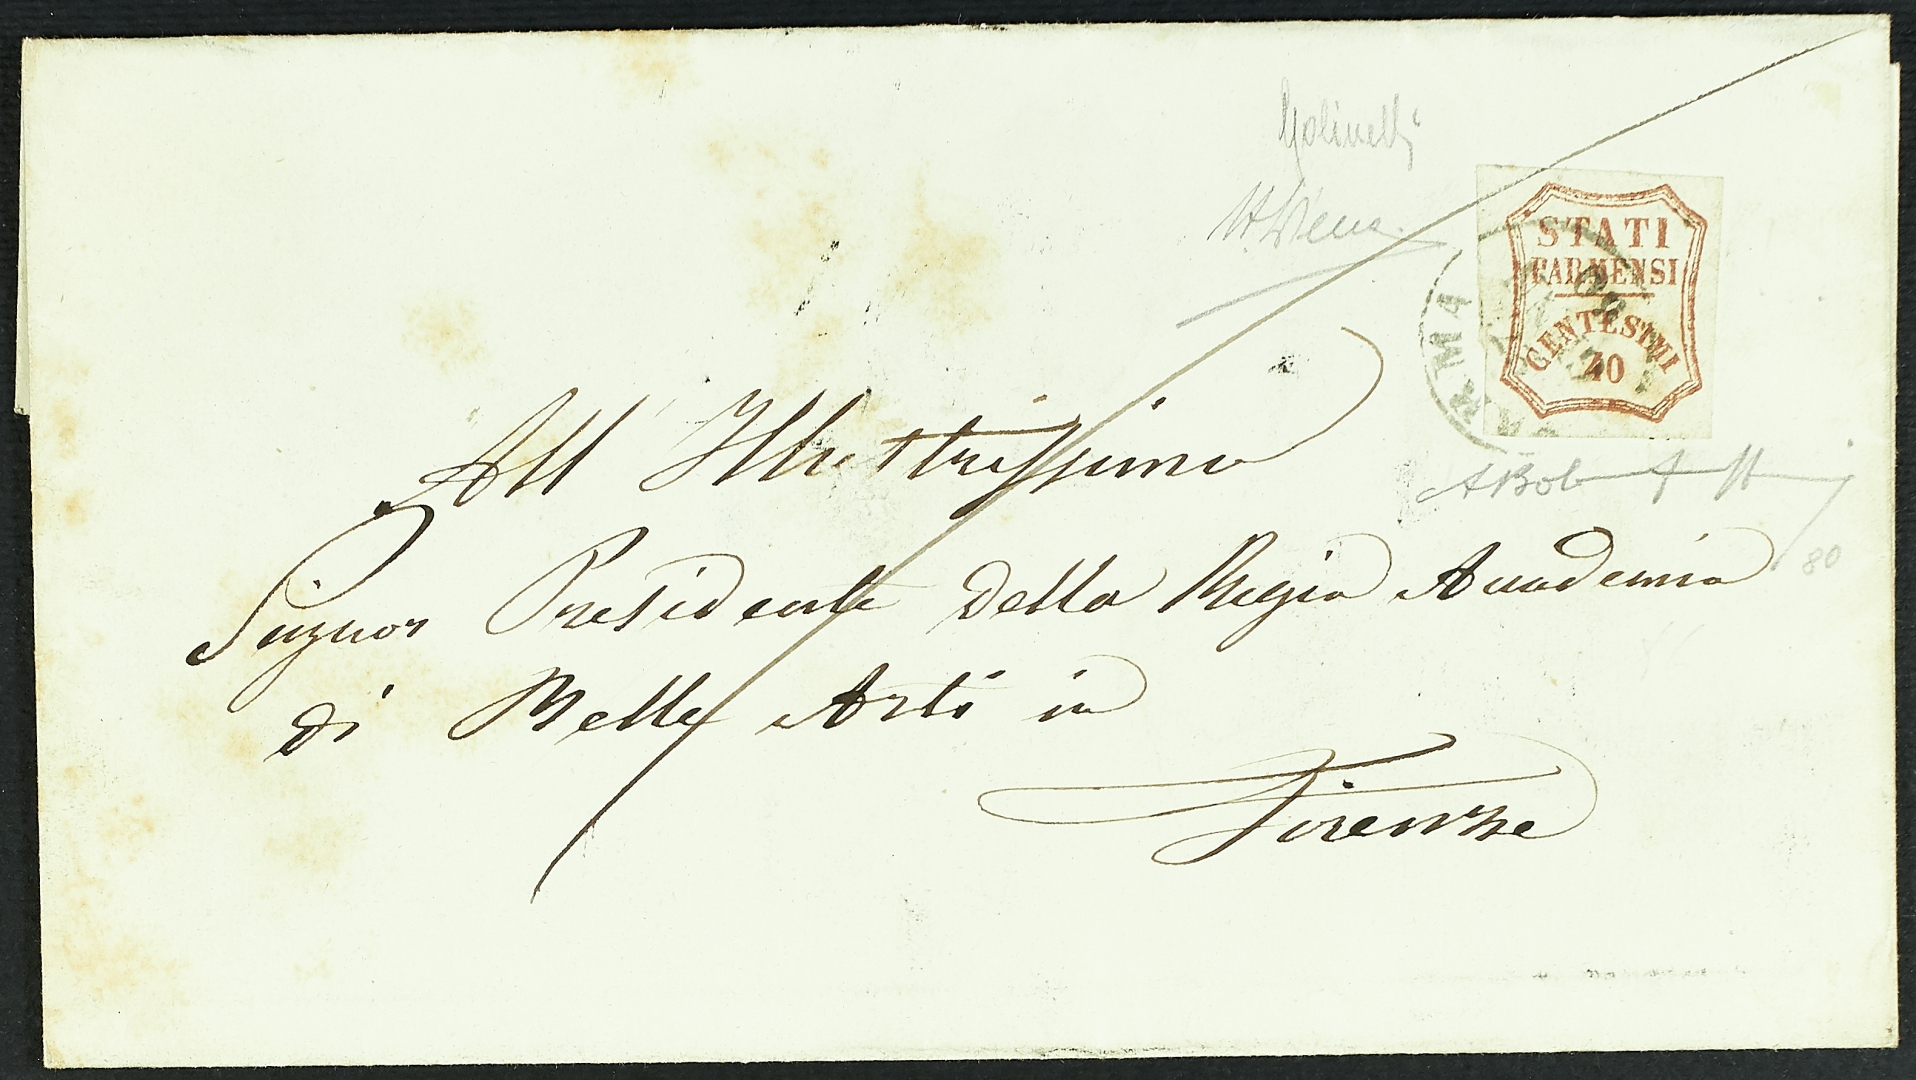 Molinelli
STATI
PARMENSI
CENTESIMI
40
PARMA
All Illustrissimo
Signor Presidente della Regia Accademia
80
di Belle Arti in
Firenze